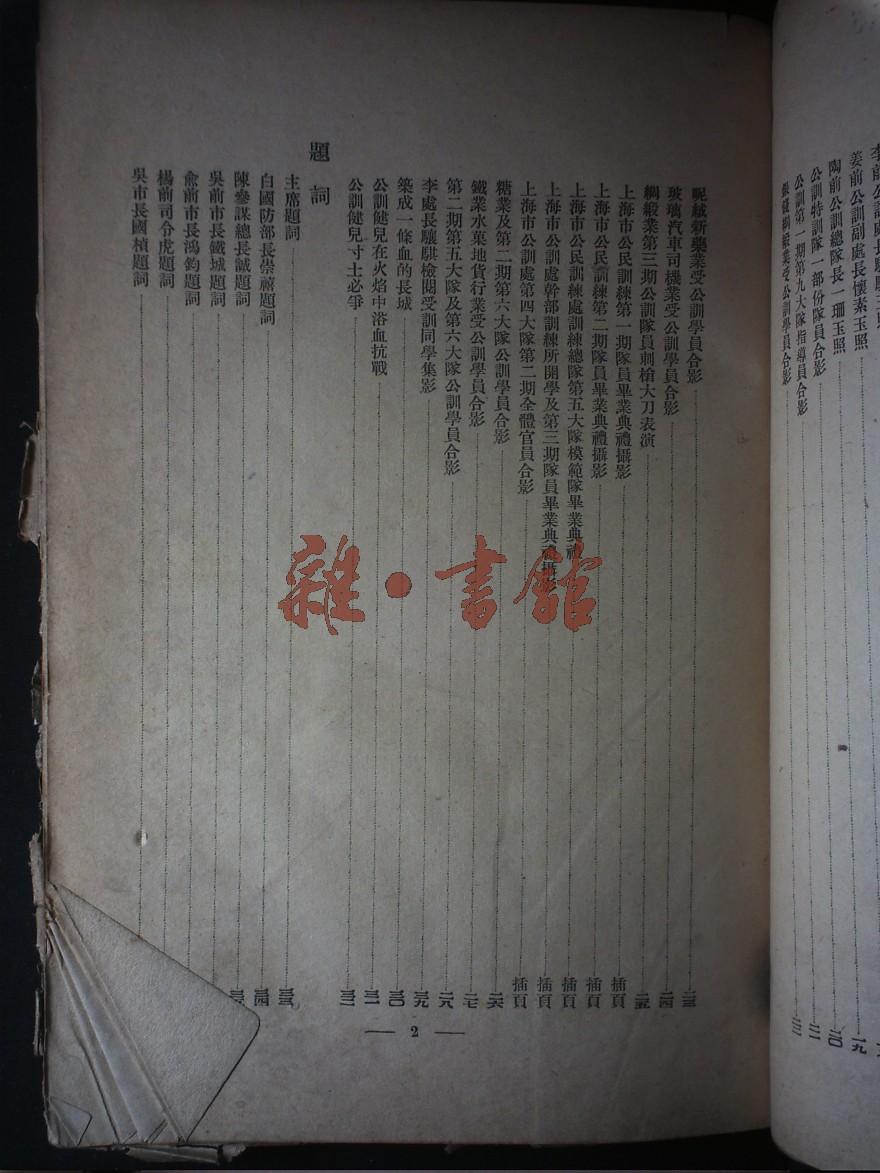 姜前公訓副處長懷素玉照 一九
陶前公訓總隊長一珊玉照 二〇
公訓特訓隊一部份隊員合影 二一
公訓第一期第九大隊指導員合影
銀錢綢緞業受公訓學員合影 二二
呢絨新藥業受公訓學員合影 二三
玻璃汽車司機業受公訓學員合影 二四
綢緞業第三期公訓隊員刺槍大刀表演 二五
上海市公民訓練第一期隊員畢業典禮攝影 插頁
上海市公民訓練第二期隊員畢業典禮攝影 插頁
上海市公民訓練處訓練總隊第五大隊模範隊畢業典禮 插頁
上海市公訓處幹部訓練所開學及第三期隊員畢業典禮攝影 插頁
上海市公訓處第四大隊第二期全體官員合影 插頁
糖業及第二期第六大隊公訓學員合影 二六
鐵業水菓地貨行業受公訓學員合影 二七
第二期第五大隊及第六大隊公訓學員合影 二八
李處長驤騏檢閱受訓同學集影 二九
築成一條血的長城 三〇
公訓健兒在火焰中浴血抗戰 三一
公訓健兒寸土必爭 三二
題詞
主席題詞 三三
白國防部長崇禧題詞 三四
陳參謀總長誠題詞
吳前市長鐵城題詞
俞前市長鴻鈞題詞
楊前司令虎題詞
吳市長國楨題詞
— 2 —
雜·書館